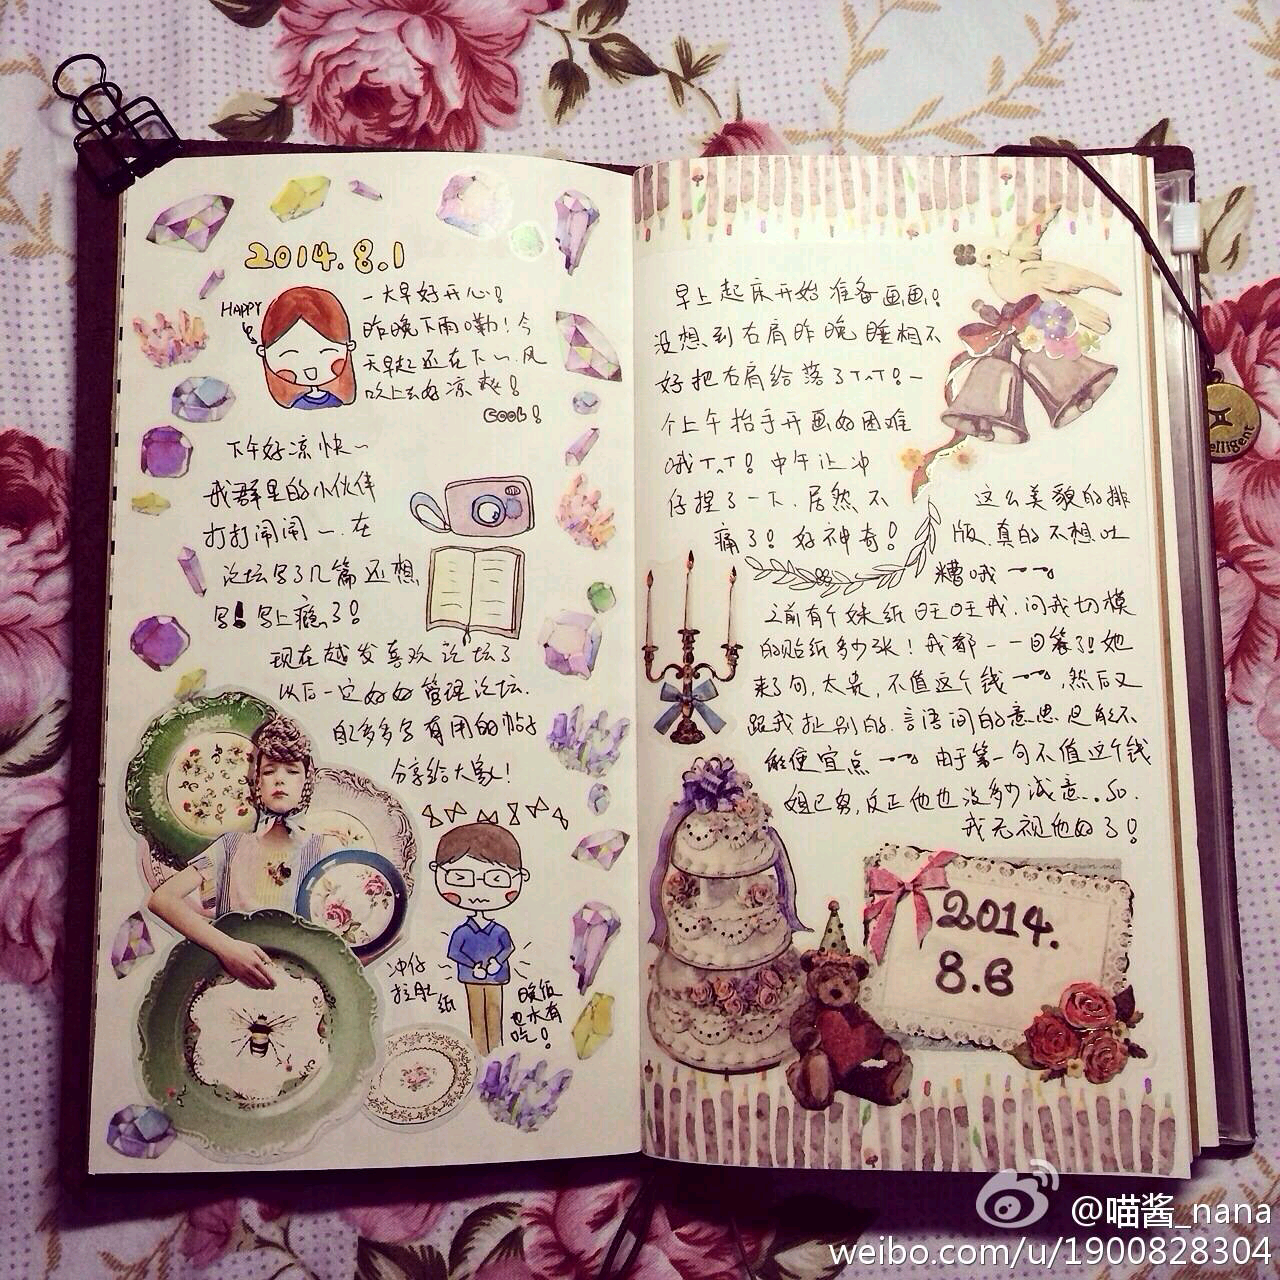 2014.8.1
HAPPY
一大早好开心！
昨晚下雨了嘞！今
天早起还在下～风
吹上去好凉爽！
COOL！
下午好凉快～
我群里的小伙伴
打打闹闹～在
论坛写了几篇还想
写！写上瘾了！
现在越发喜欢论坛了
以后一定好好管理论坛.
自己多多写有用的帖子
分享给大家！
冲仔
拉肚
纸
晚饭
也木有
吃！
早上起床开始准备画画！
没想到右肩昨晚睡相不
好把右肩给落了T^T！一
个上午抬手开画好困难
哦T^T！中午让冲
仔捏了一下.居然不
痛了！好神奇！
这么美貌的排
版.真的不想吐
糟哦
之前有个妹纸旺旺我.问我切模
的贴纸多少张！我都一一回答了！她
来了句,太贵,不值这个钱,然后又
跟我扯别的.言语间的意思是能不
能便宜点 由于第一句不值这个钱
反正他也没多少诚意..So.
我无视他好了！
2014.
8.6
elligent
@喵酱_nana
weibo.com/u/1900828304